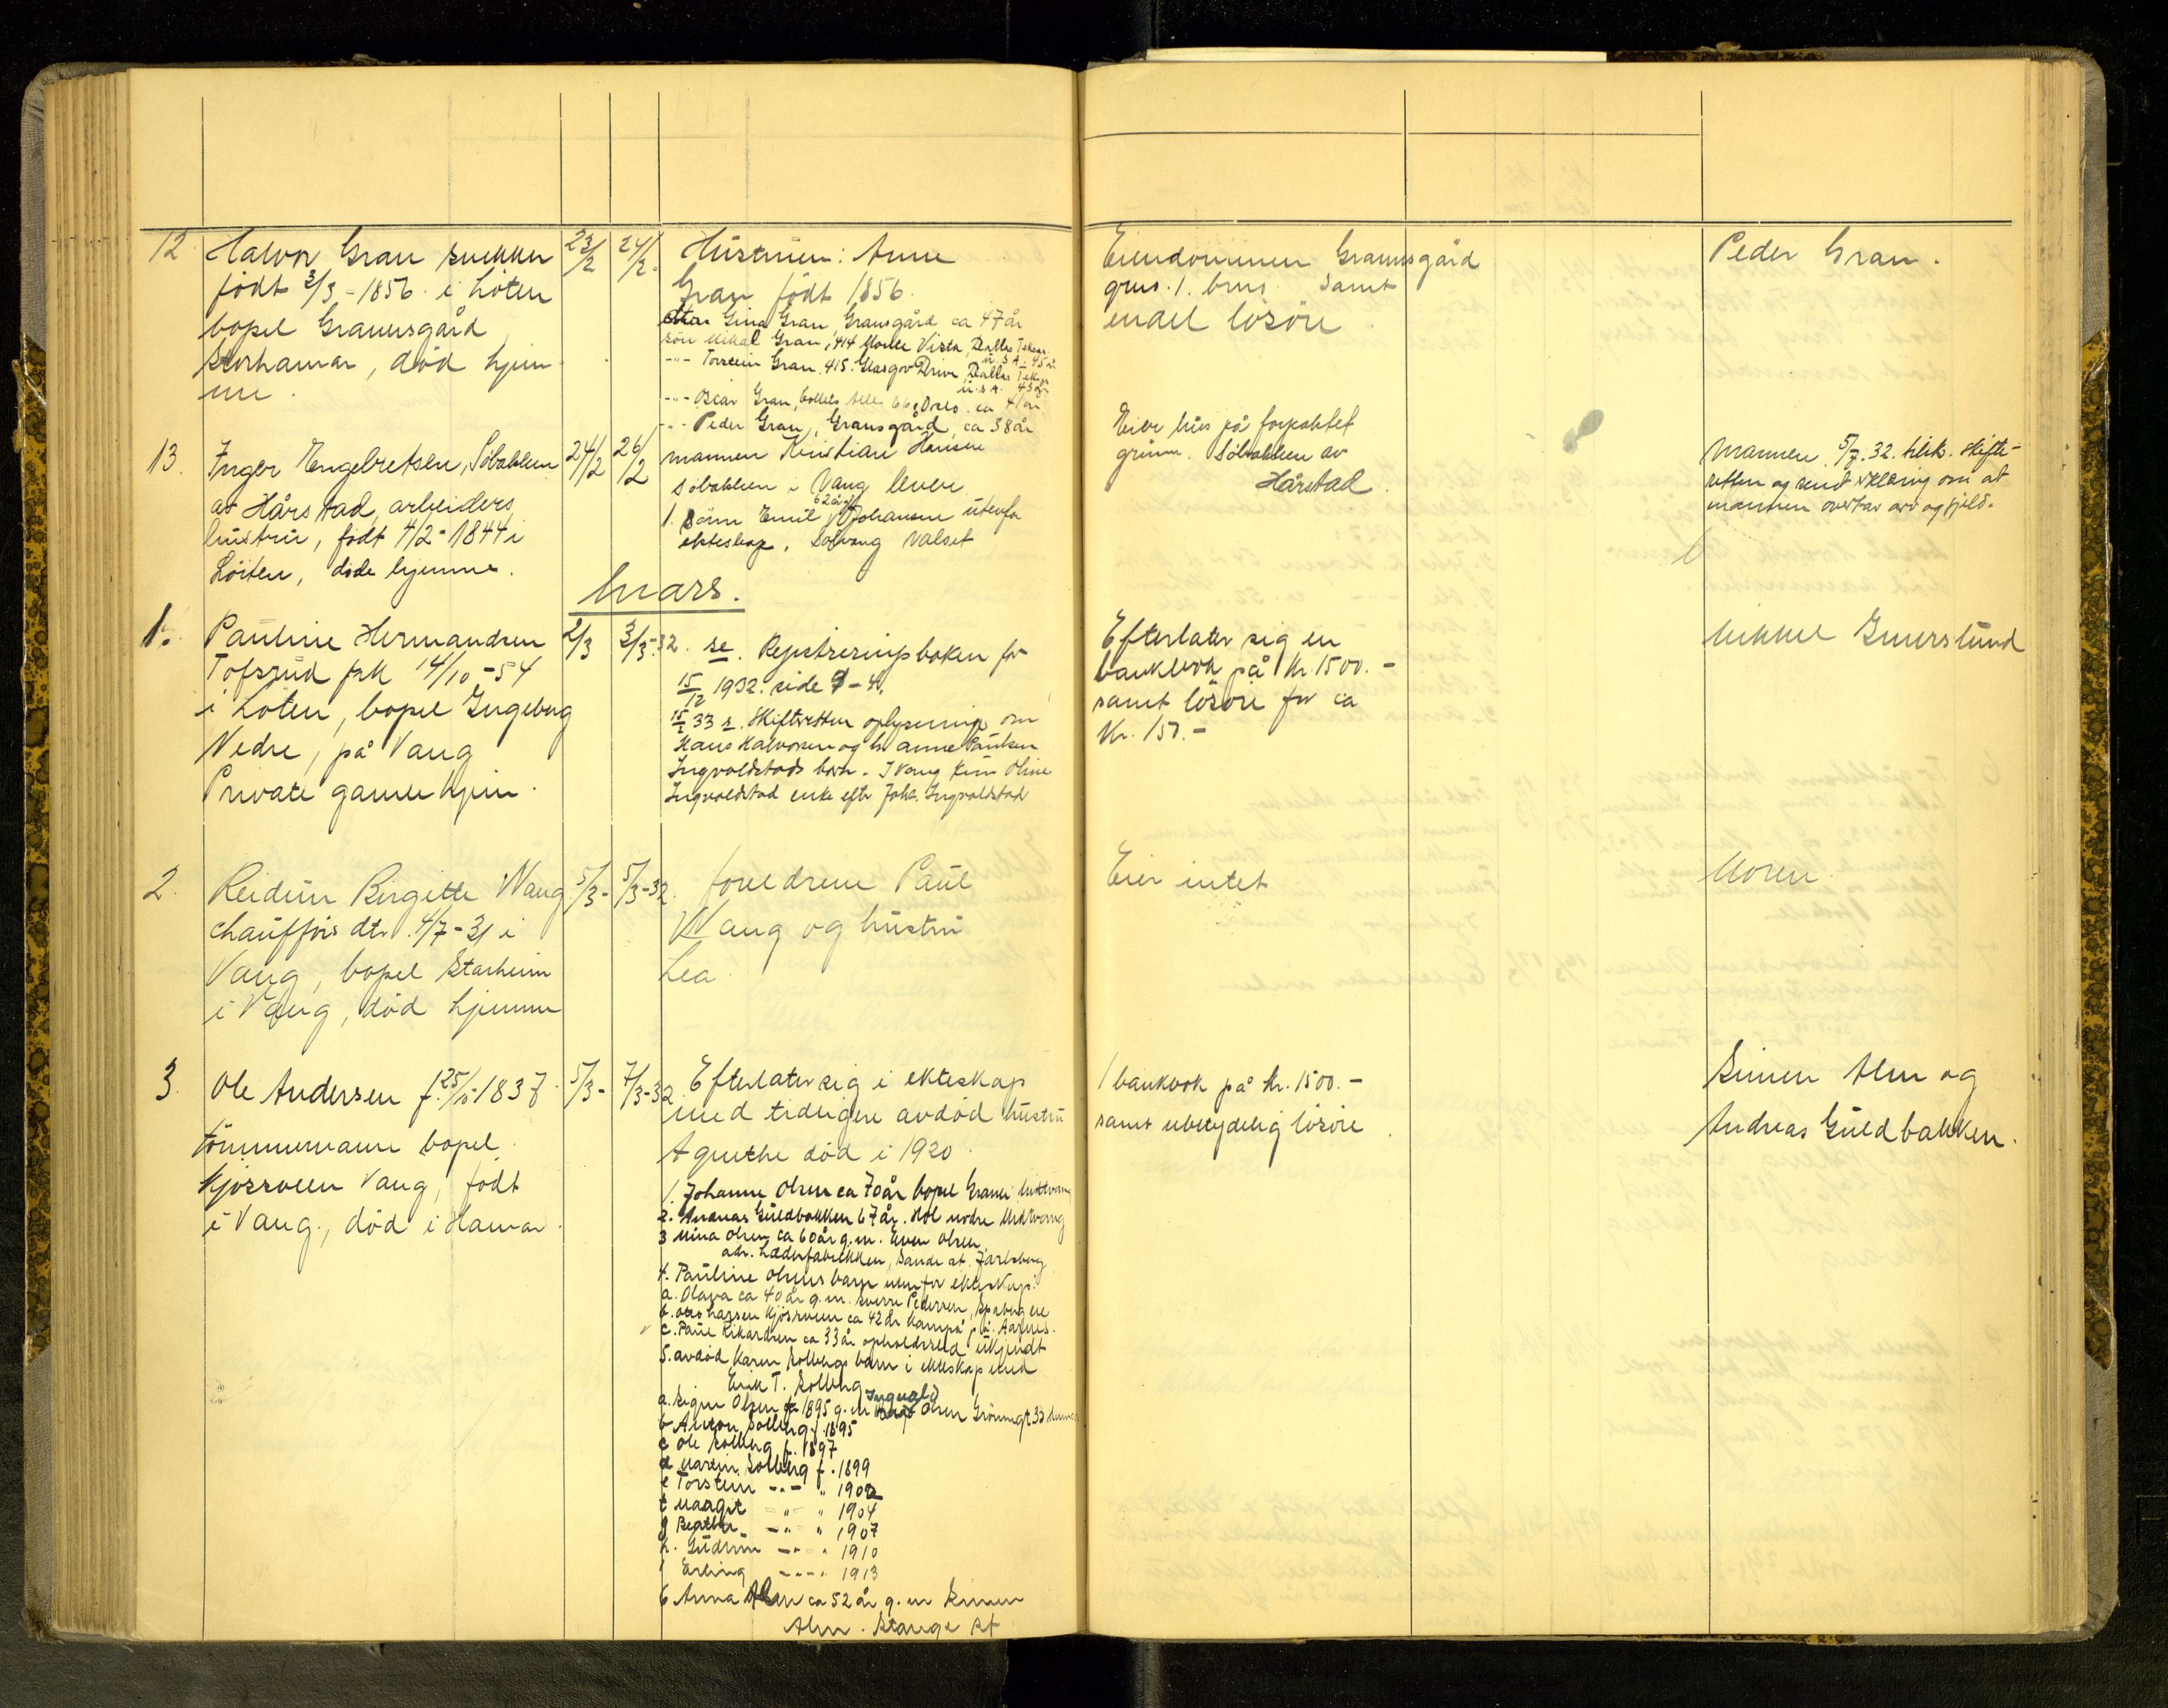 12
Halvor Gran snekker
født 3/3 - 1856 i Løten
bopel Grannsgård
Storhamar, død hjem-
me.
23/2
24/2.
Hustruen: Anne
Gran født 1856.
Gina Gran, Gransgård ca 47 år
søn Mikal Gran, 414 Monte Vista, Dallas Teksas
U.S.A. 45 år
-"- Torstein Gran, 415. Glasgov Drive, Dallas Tekas
U.S.A. 43 år
-"- Oscar Gran, Colletts Alle 66, Oslo. ca 41 år
-"- Peder Gran, Gransgård, ca 38 år
Eiendommen Grannsgård
gnr. 1. brnr. samt
endel løsøre
Peder Gran.
13.
Inger Engebretsen, Solbakken
av Hårstad, arbeiders
hustru, født 4/2 - 1844 i
Löiten, døde hjemme.
24/2
26/2
mannen Kristian Hansen
Solbakken i Vang lever
62 år g.
1. Sönn Emil Johansen utenfor
ekteskap, Solvang Valset
Eier hus på forpaktet
grunn. Solbakken av
Hårstad.
Mannen. 5/7. 32. tilsk. skifte-
retten og sendt erklæring om at
mannen overtar arv og gjeld.
Mars.
1.
Pauline Hermandsen
Tofsrud frk 14/10 - 54
i Løten, bopel Ingeberg
Nedre, på Vang
Private gamlehjem.
2/3
3/3-32.
se. Registreringsboken for
15/12 1932. side
15/1 33 s. Skifteretten oplysning om
Hans Halvorsen og h. Anne Paulsen
Ingvoldstads barn. I Vang kun Oline
Ingvoldstad enke efter Johs. Ingvoldstad
Efterlater sig en
bankbok på Kr. 1500.-
samt løsøre for ca
Kr. 150.-
Mikkel Imerslund
2.
Reidun Birgitte Wang
chaufførs dtr. 4/7 - 31 i
Vang, bopel Starheim
i Vang, død hjemme
5/3-
5/3-32.
foreldrene Paul
Wang og hustru
Lea.
Eier intet
Moren.
3.
Ole Andersen f. 25/10-1837
tømmermann bopel
Kjosveen Vang, født
i Vang., død i Hamar.
5/3-
7/3-32
Efterlater sig i ekteskap
med tidligere avdød hustru
Agnethe død i 1920.
1. Johanne Olsen ca 70 år bopel Granli Midtvang
2. Andreas Guldbakken 67 år. Hol nodre Midtvang
3 Mina Olsen ca 60 år g.m. Even Olsen.
adr. Læderfabrikken, Sande st. Jarlsberg
4. Pauline Olsens barn utenfor ekteskap:
a. Olava ca 40 år g.m. Sverre Pedersen,
b. Otto Larsen Kjosveen ca 42 år
c. Paul Rikardsen ca 33 år opholdssted ukjendt
5. avdød Karen Solbergs barn i ekteskap med
Erik T. Solberg
Ingvald
a. Signe Olsen f. 1895 g.m. Olsen Grönnegt 33 Hamar
b Anton Solberg f. 1895
c Ole Solberg f. 1897
d Maren Solberg f. 1899
e Torstein -"- " 1902
f Margit -"- " 1904
g Beathe -"- " 1907
h. Gudrun -"- " 1910
i Erling -"- " 1913
6 Anna Alm ca 52 år g.m Simen
Alm. Stange st
1 bankbok på Kr. 1500.-
samt ubetydelig løsøre.
Simen Alm og
Andreas Guldbakken.